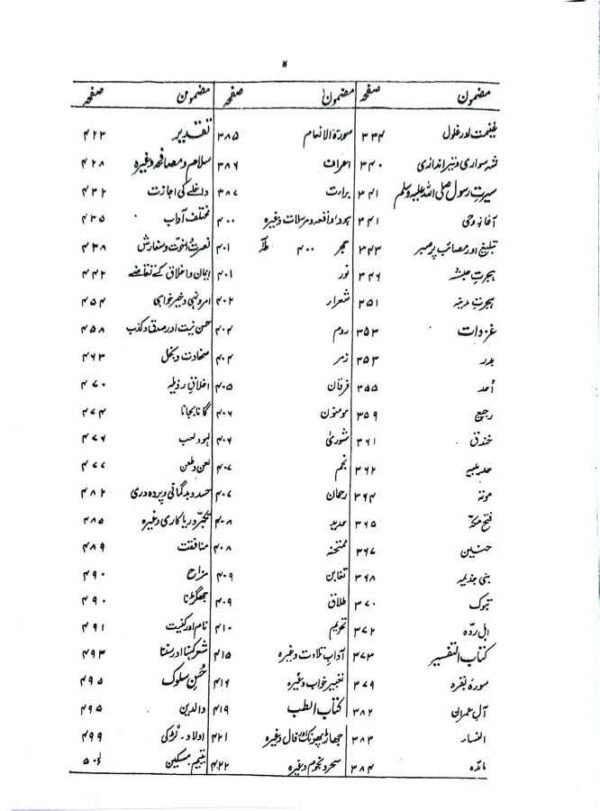 مضمون صفحہ مضمون صفحہ مضمون صفحہ
غنیمت اور غلول ۳۳۴ سورۃ الانعام ۳۸۵ تقدیر ۴۲۳
شہ سواری و تیر اندازی ۳۴۰ اعراف ۳۸۶ سلام و مصافحہ وغیرہ ۴۲۸
سیرت رسول صلی اللہ علیہ وسلم ۳۴۱ براءت ۳۸۷ داخلے کی اجازت ۴۳۲
آغاز وحی ۳۴۱ ہود و مرسلات وغیرہ ۴۰۰ مختلف آداب ۴۳۵
تبلیغ اور مصائب پر صبر ۳۴۳ حجر ۴۰۰ طٰہٰ ۴۰۱ نصرت اخوت و سفارش ۴۳۸
ہجرت حبشہ ۳۴۶ نور ۴۰۱ ایمان و اخلاق کے تقاضے ۴۴۲
ہجرت مدینہ ۳۵۱ شعراء ۴۰۲ امر و نہی و خیر خواہی ۴۵۴
غزوات ۳۵۳ روم ۴۰۴ حسن نیت اور صدق و کذب ۴۵۸
بدر ۳۵۳ زمر ۴۰۴ سخاوت و بخل ۴۶۳
احد ۳۵۵ فرقان ۴۰۵ اخلاق رذیلہ ۴۷۰
رجیع ۳۵۹ مومنون ۴۰۶ گانا بجانا ۴۷۴
خندق ۳۶۱ شوریٰ ۴۰۶ لہو و لعب ۴۷۶
حدیبیہ ۳۶۲ نجم ۴۰۷ لعن و طعن ۴۷۷
موتہ ۳۶۴ رحمان ۴۰۷ حسد و بدگمانی و پردہ دری ۴۸۲
فتح مکہ ۳۶۵ حدید ۴۰۸ تکبر و ریاکاری وغیرہ ۴۸۵
حنین ۳۶۷ ممتحنہ ۴۰۸ منافقت ۴۸۹
بنی جذیمہ ۳۶۸ تغابن ۴۰۹ مزاح ۴۹۰
تبوک ۳۷۰ طلاق ۴۰۹ جھگڑنا ۴۹۰
اہل ردہ ۳۷۲ تحریم ۴۱۰ نام اور کنیت ۴۹۱
کتاب التفسیر ۳۷۳ آداب تلاوت وغیرہ ۴۱۵ شعر کہنا اور سننا ۴۹۳
سورہ بقرہ ۳۷۹ تعبیر خواب وغیرہ ۴۱۶ حسن سلوک ۴۹۵
آل عمران ۳۸۲ کتاب الطب ۴۱۹ والدین ۴۹۵
النساء ۳۸۳ جھاڑ پھونک فال وغیرہ ۴۲۱ اولاد - لڑکی ۴۹۹
مائدہ ۳۸۴ سحر و نجوم وغیرہ ۴۲۲ یتیم مسکین